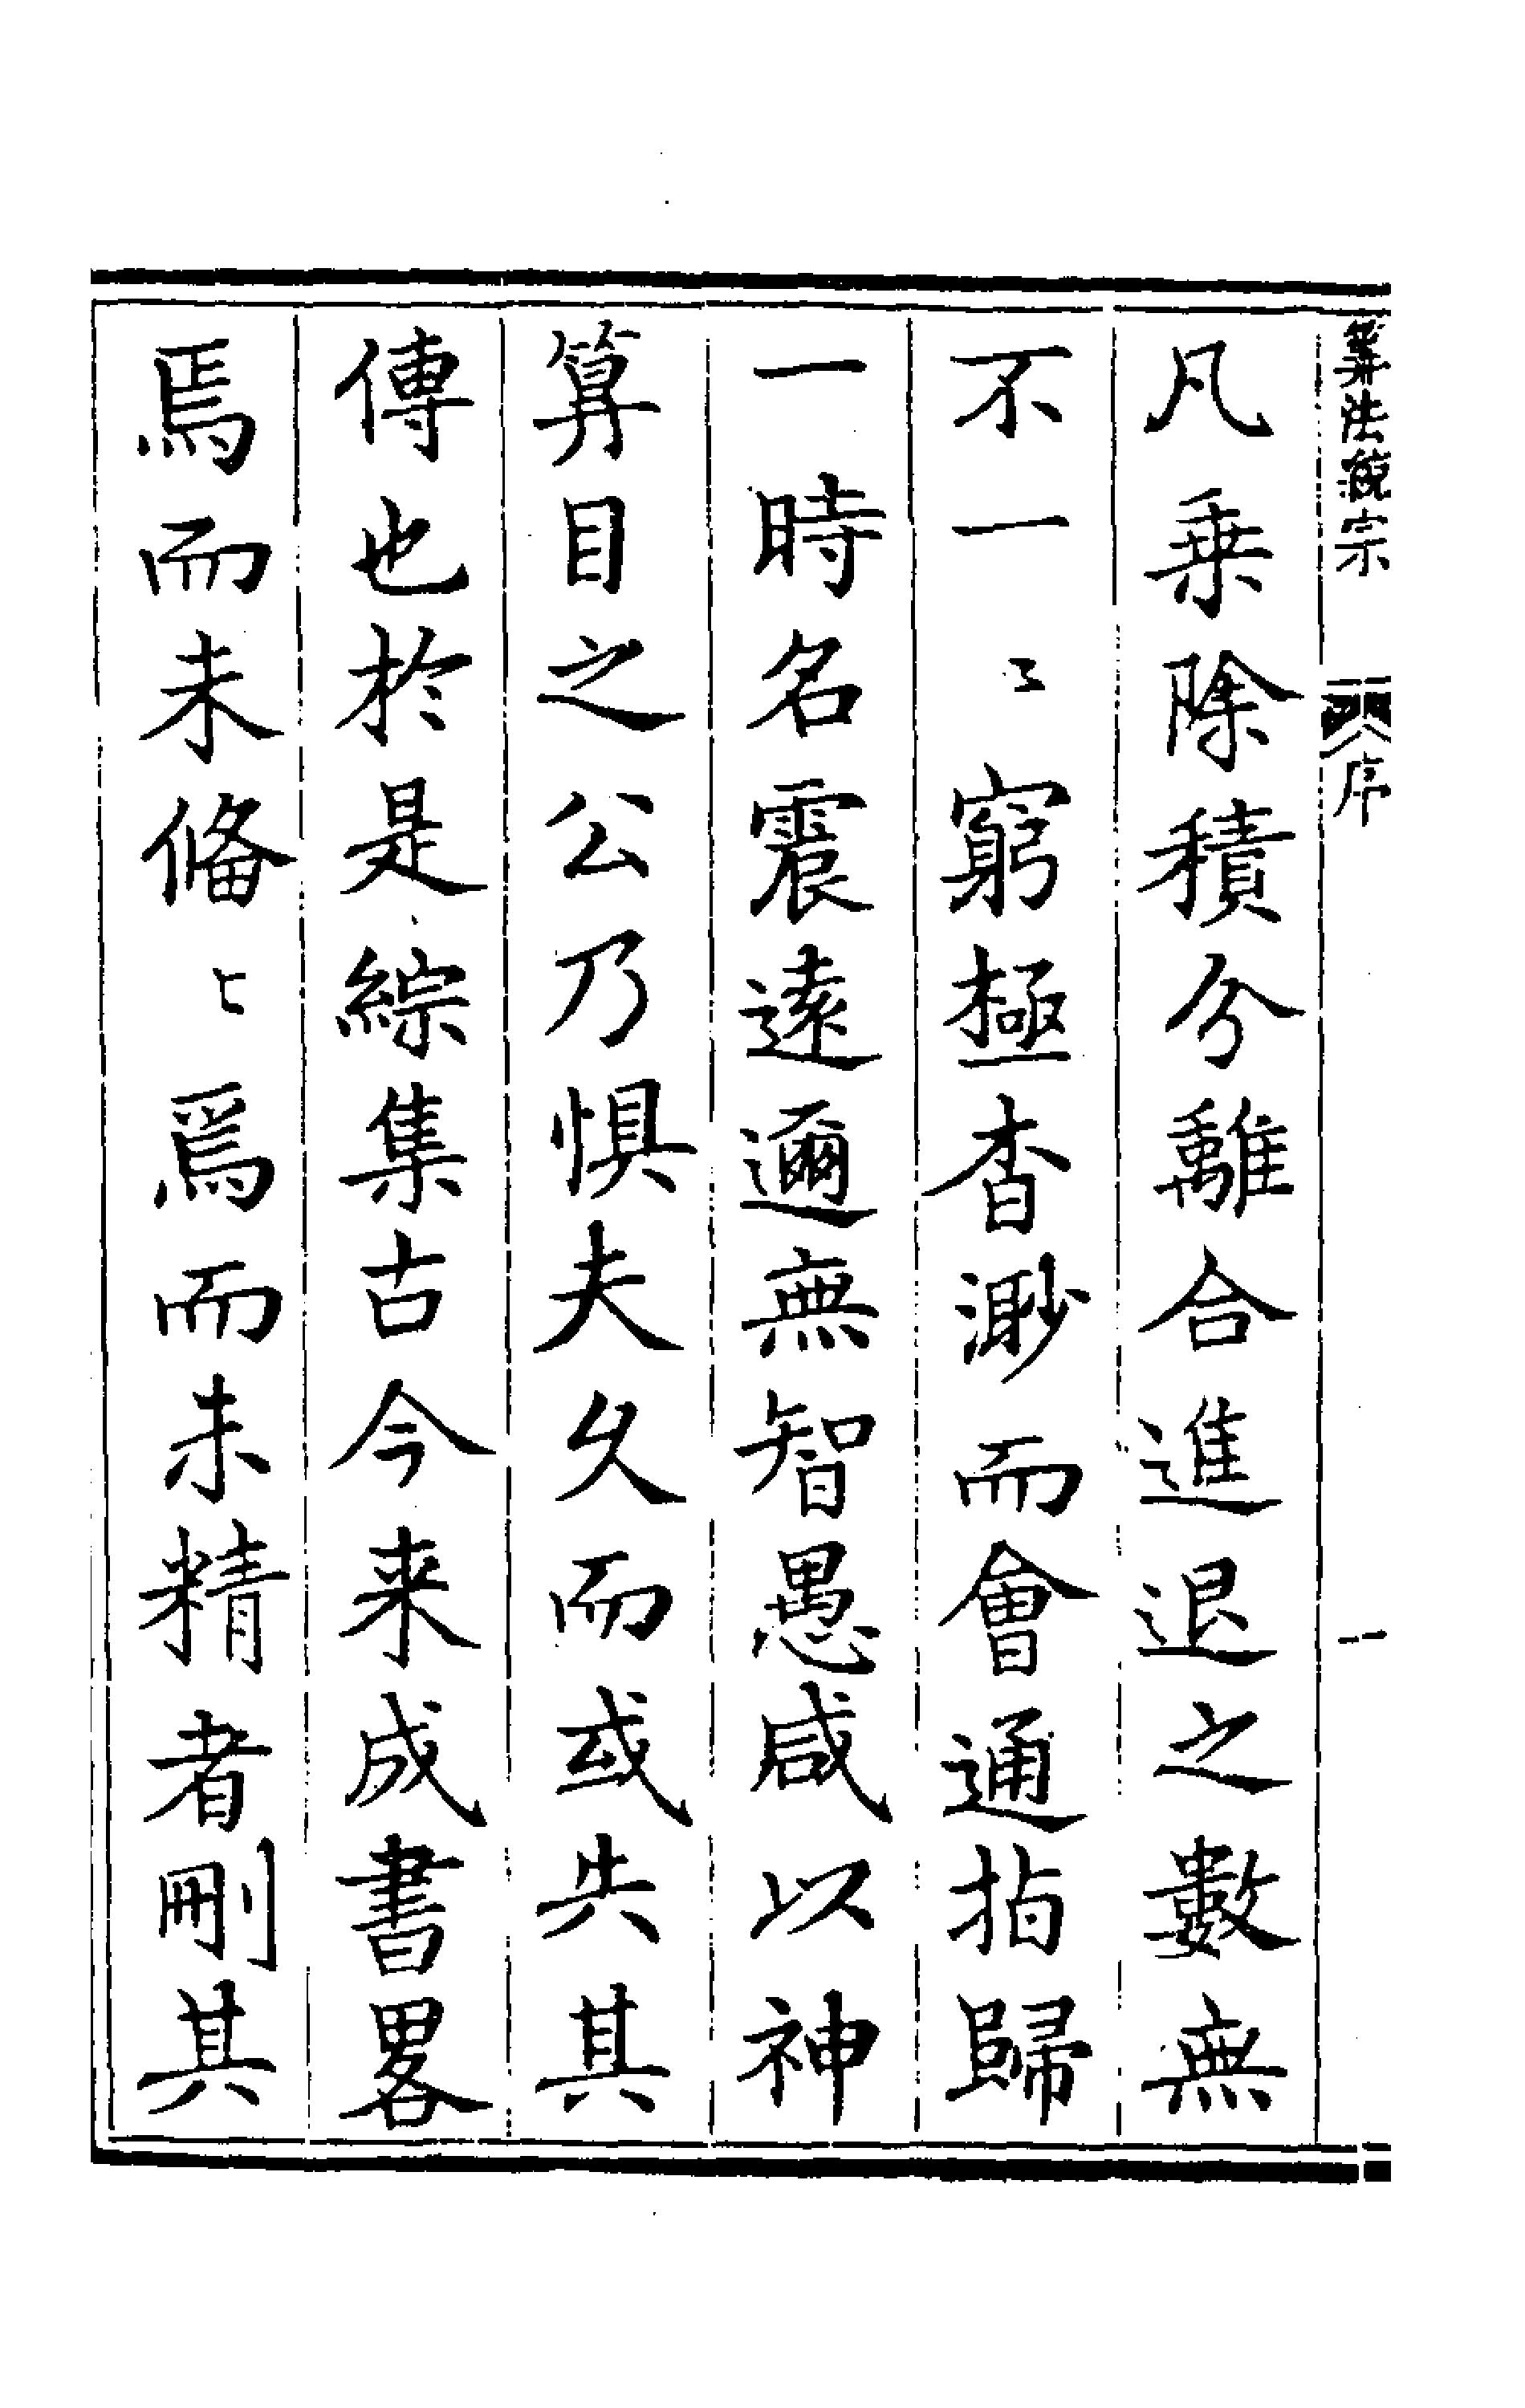 算法統宗 序 一
凡乗除積分離合進退之數無
不一〻窮極杳渺而會通指歸
一時名震遠邇無智愚咸以神
算目之公乃惧夫久而或失其
傳也於是綜集古今来成書畧
焉而未俻〻焉而未精者刪其